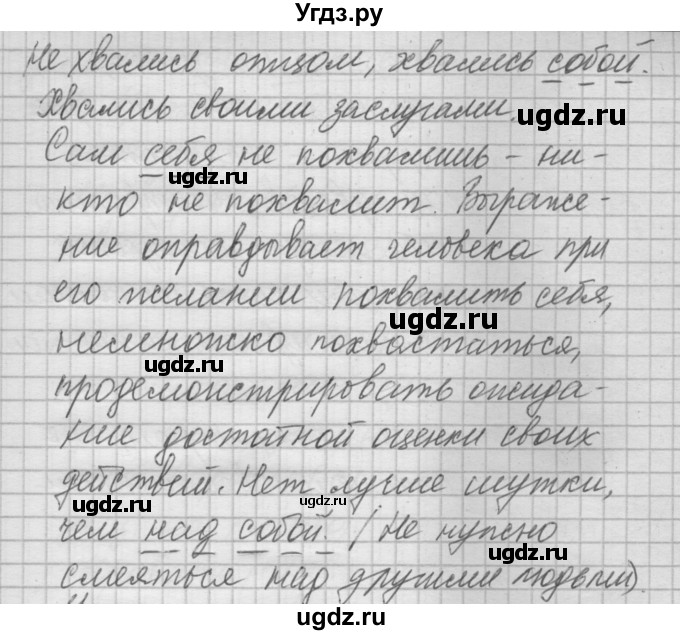 Угдз.ру
Не хвались отцом, хвались собой.
Хвались своими заслугами.
угдз.ру
Сам себя не похвалишь - ни-
угдз.ру
кто не похвалит. Выраже-
ние оправдывает человека при
его желании похвалить себя,
угдз.ру
немножко похвастаться,
угдз.ру
продемонстрировать ожида-
ние достойной оценки своих
действий. Нет лучше шутки,
угдз.ру
угдз.ру
чем над собой. (Не нужно
угдз.ру
смеяться над другими людьми).
угдз.ру
угдз.ру